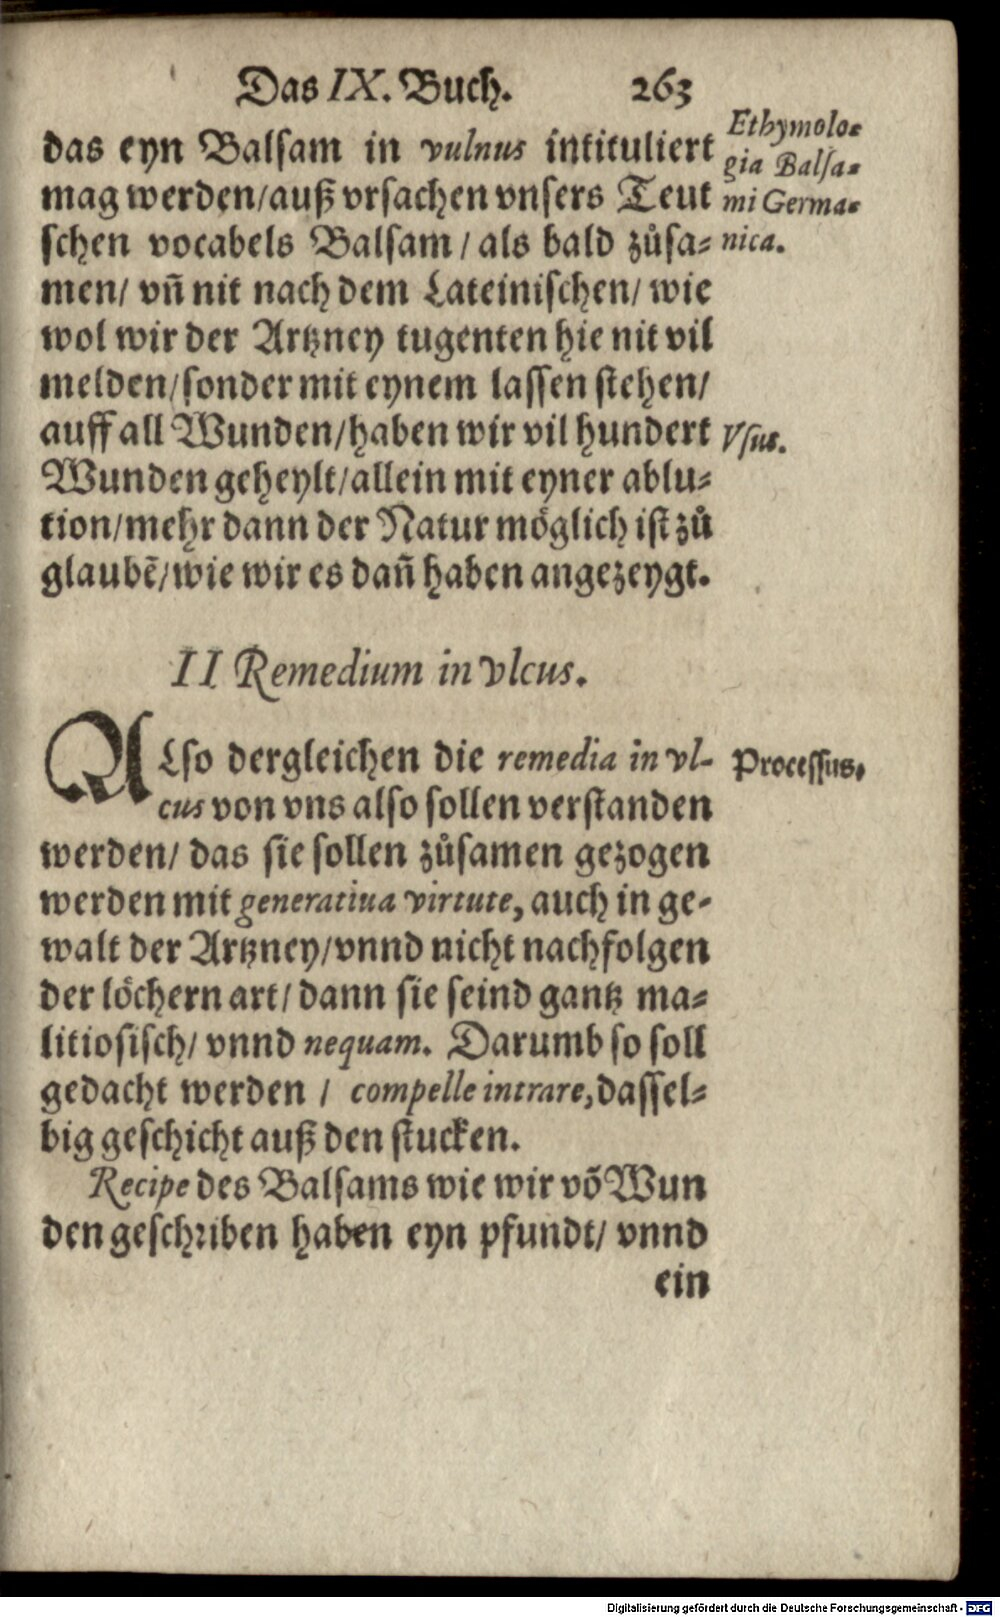 Das IX. Buch. 263
das eyn Balsam in vulnus intituliert
mag werden/auß vrsachen vnsers Teut
schen vocabels Balsam/ als bald zůsa⸗
men/ vñ nit nach dem Lateinischen/ wie
wol wir der Artzney tugenten hie nit vil
melden/sonder mit eynem lassen stehen/
auff all Wunden/haben wir vil hundert
Wunden geheylt/allein mit eyner ablu⸗
tion/mehr dann der Natur möglich ist zů
glaubẽ/wie wir es dañ haben angezeygt.
Ethymolo⸗
gia Balsa⸗
mi Germa⸗
nica.
Vsus.
II Remedium in vlcus.
ALso dergleichen die remedia in vl-
cus von vns also sollen verstanden
werden/ das sie sollen zůsamen gezogen
werden mit generatiua virtute, auch in ge-
walt der Artzney/vnnd nicht nachfolgen
der löchern art/ dann sie seind gantz ma⸗
litiosisch/ vnnd nequam. Darumb so soll
gedacht werden / compelle intrare, dassel⸗
big geschicht auß den stucken.
Processus.
Recipe des Balsams wie wir võ Wun
den geschriben haben eyn pfundt/ vnnd
ein
Digitalisierung gefördert durch die Deutsche Forschungsgemeinschaft - DFG